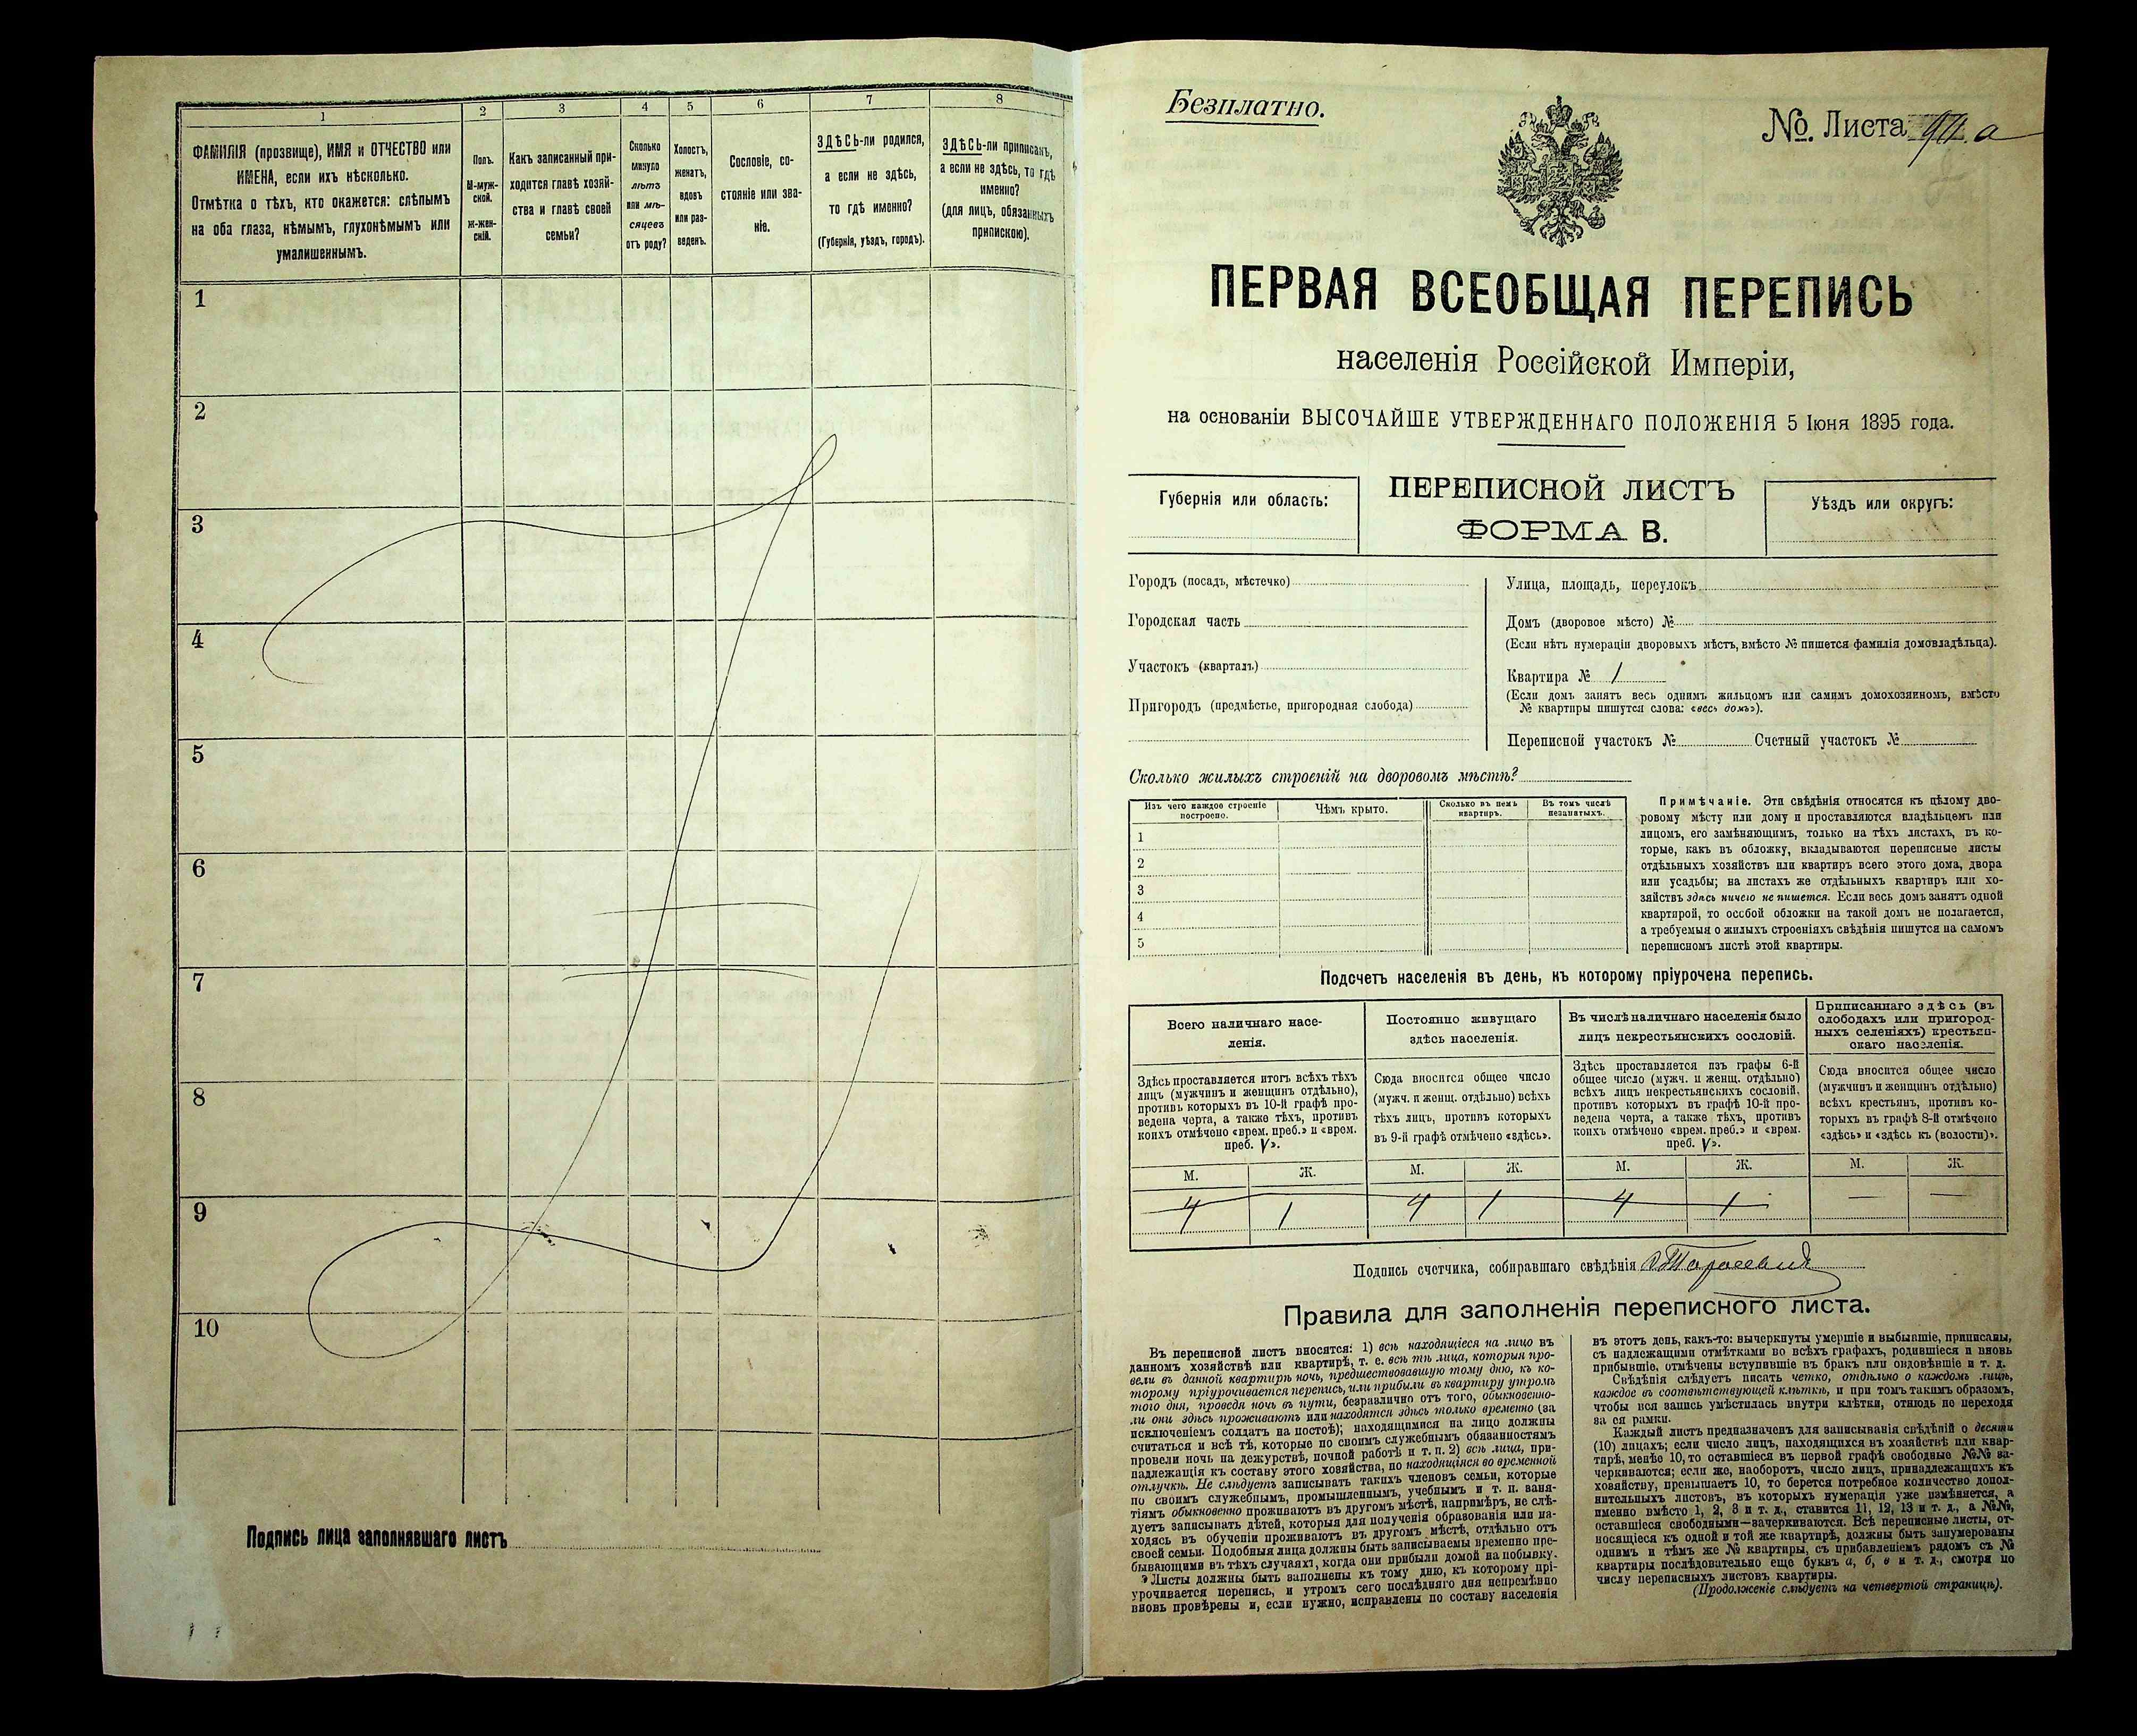 1
2
3
4
5
6
7
8
ФАМИЛІЯ (прозвище), ИМЯ и ОТЧЕСТВО или
ИМЕНА, если ихъ нѣсколько.
Отмѣтка о тѣхъ, кто окажется: слѣпымъ
на оба глаза, нѣмымъ, глухонѣмымъ или
умалишеннымъ.
Полъ.
М-муж-
ской.
Ж-жен-
скій.
Какъ записанный при-
ходится главѣ хозяй-
ства и главѣ своей
семьи?
Сколько
минуло
лѣтъ
или мѣ-
сяцевъ
отъ роду?
Холостъ,
женатъ,
вдовъ
или раз-
веденъ.
Сословіе, со-
стояніе или зва-
ніе.
ЗДѢСЬ-ли родился,
а если не здѣсь,
то гдѣ именно?
(Губернія, уѣздъ, городъ).
ЗДѢСЬ-ли приписанъ,
а если не здѣсь, то гдѣ
именно?
(для лицъ, обязанныхъ
припискою).
1
2
3
4
5
6
7
8
9
10
Подпись лица заполнявшаго листъ
Безплатно.
№. Листа 94. а
ПЕРВАЯ ВСЕОБЩАЯ ПЕРЕПИСЬ
населенія Россійской Имперіи,
на основаніи ВЫСОЧАЙШЕ УТВЕРЖДЕННАГО ПОЛОЖЕНІЯ 5 Іюня 1895 года.
Губернія или область:
ПЕРЕПИСНОЙ ЛИСТЪ
ФОРМА В.
Уѣздъ или округъ:
Городъ (посадъ, мѣстечко)
Городская часть
Участокъ (кварталъ)
Пригородъ (предмѣстье, пригородная слобода)
Улица, площадь, переулокъ
Домъ (дворовое мѣсто) №
(Если нѣтъ нумераціи дворовыхъ мѣстъ, вмѣсто № пишется фамилія домовладѣльца).
Квартира № 1
(Если домъ занятъ весь однимъ жильцомъ или самимъ домохозяиномъ, вмѣсто
№ квартиры пишутся слова: «весь домъ»).
Переписной участокъ № Счетный участокъ №
Сколько жилыхъ строеній на дворовомъ мѣстѣ?
Изъ чего каждое строеніе
построено.
Чѣмъ крыто.
Сколько въ немъ
квартиръ.
Въ томъ числѣ
незанятыхъ.
1
2
3
4
5
Примѣчаніе. Эти свѣдѣнія относятся къ цѣлому дво-
ровому мѣсту или дому и проставляются владѣльцемъ или
лицомъ, его замѣняющимъ, только на тѣхъ листахъ, въ ко-
торые, какъ въ обложку, вкладываются переписные листы
отдѣльныхъ хозяйствъ или квартиръ всего этого дома, двора
или усадьбы; на листахъ же отдѣльныхъ квартиръ или хо-
зяйствъ здѣсь ничего не пишется. Если весь домъ занятъ одной
квартирой, то особой обложки на такой домъ не полагается,
а требуемыя о жилыхъ строеніяхъ свѣдѣнія пишутся на самомъ
переписномъ листѣ этой квартиры.
Подсчетъ населенія въ день, къ которому пріурочена перепись.
Всего наличнаго насе-
ленія.
Постоянно живущаго
здѣсь населенія.
Въ числѣ наличнаго населенія было
лицъ некрестьянскихъ сословій.
Приписаннаго здѣсь (въ
слободахъ или пригород-
ныхъ селеніяхъ) крестьян-
скаго населенія.
Здѣсь проставляется итогъ всѣхъ тѣхъ
лицъ (мужчинъ и женщинъ отдѣльно),
противъ которыхъ въ 10-й графѣ про-
ведена черта, а также тѣхъ, противъ
коихъ отмѣчено «врем. преб.» и «врем.
преб. V».
Сюда вносится общее число
(мужч. и женщ. отдѣльно) всѣхъ
тѣхъ лицъ, противъ которыхъ
въ 9-й графѣ отмѣчено «здѣсь».
Здѣсь проставляется изъ графы 6-й
общее число (мужч. и женщ. отдѣльно)
всѣхъ лицъ некрестьянскихъ сословій,
противъ которыхъ въ графѣ 10-й про-
ведена черта, а также тѣхъ, противъ
коихъ отмѣчено «врем. преб.» и «врем.
преб. V».
Сюда вносится общее число
(мужчинъ и женщинъ отдѣльно)
всѣхъ крестьянъ, противъ ко-
торыхъ въ графѣ 8-й отмѣчено
«здѣсь» и «здѣсь къ (волости)».
М. Ж. М. Ж. М. Ж. М. Ж.
4 1 4 1 4 1 — —
Подпись счетчика, собиравшаго свѣдѣнія
Правила для заполненія переписного листа.
Въ переписной листъ вносятся: 1) всѣ находящіеся на лицо въ
данномъ хозяйствѣ или квартирѣ, т. е. всѣ тѣ лица, которыя про-
вели въ данной квартирѣ ночь, предшествовавшую тому дню, къ ко-
торому пріурочивается перепись, или прибыли въ квартиру утромъ
того дня, проведя ночь въ пути, безразлично отъ того, обыкновенно-
ли они здѣсь проживаютъ или находятся здѣсь только временно (за
исключеніемъ солдатъ на постоѣ); находящимися на лицо должны
считаться и всѣ тѣ, которые по своимъ служебнымъ обязанностямъ
провели ночь на дежурствѣ, ночной работѣ и т. п. 2) всѣ лица, при-
надлежащія къ составу этого хозяйства, но находящіяся во временной
отлучкѣ. Не слѣдуетъ записывать такихъ членовъ семьи, которые
по своимъ служебнымъ, промышленнымъ, учебнымъ и т. п. заня-
тіямъ обыкновенно проживаютъ въ другомъ мѣстѣ, напримѣръ, не слѣ-
дуетъ записывать дѣтей, которыя для полученія образованія или на-
ходясь въ обученіи проживаютъ въ другомъ мѣстѣ, отдѣльно отъ
своей семьи. Подобныя лица должны быть записываемы временно пре-
бывающими въ тѣхъ случаяхъ, когда они прибыли домой на побывку.
Листы должны быть заполнены къ тому дню, къ которому прі-
урочивается перепись, и утромъ сего послѣдняго дня непремѣнно
вновь провѣрены и, если нужно, исправлены по составу населенія
въ этотъ день, какъ-то: вычеркнуты умершіе и выбывшіе, приписаны,
съ надлежащими отмѣтками во всѣхъ графахъ, родившіеся и вновь
прибывшіе, отмѣчены вступившіе въ бракъ или овдовѣвшіе и т. д.
Свѣдѣнія слѣдуетъ писать четко, отдѣльно о каждомъ лицѣ,
каждое въ соотвѣтствующей клѣткѣ, и при томъ такимъ образомъ,
чтобы вся запись умѣстилась внутри клѣтки, отнюдь не переходя
за ея рамки.
Каждый листъ предназначенъ для записыванія свѣдѣній о десяти
(10) лицахъ; если число лицъ, находящихся въ хозяйствѣ или квар-
тирѣ, менѣе 10, то оставшіеся въ первой графѣ свободные №№ за-
черкиваются; если же, наоборотъ, число лицъ, принадлежащихъ къ
хозяйству, превышаетъ 10, то берется потребное количество допол-
нительныхъ листовъ, въ которыхъ нумерація уже измѣняется, а
именно вмѣсто 1, 2, 3 и т. д., ставится 11, 12, 13 и т. д., а №№,
оставшіеся свободными—зачеркиваются. Всѣ переписные листы, от-
носящіеся къ одной и той же квартирѣ, должны быть занумерованы
однимъ и тѣмъ же № квартиры, съ прибавленіемъ рядомъ съ №
квартиры послѣдовательно еще буквъ а, б, в и т. д., смотря по
числу переписныхъ листовъ квартиры.
(Продолженіе слѣдуетъ на четвертой страницѣ).